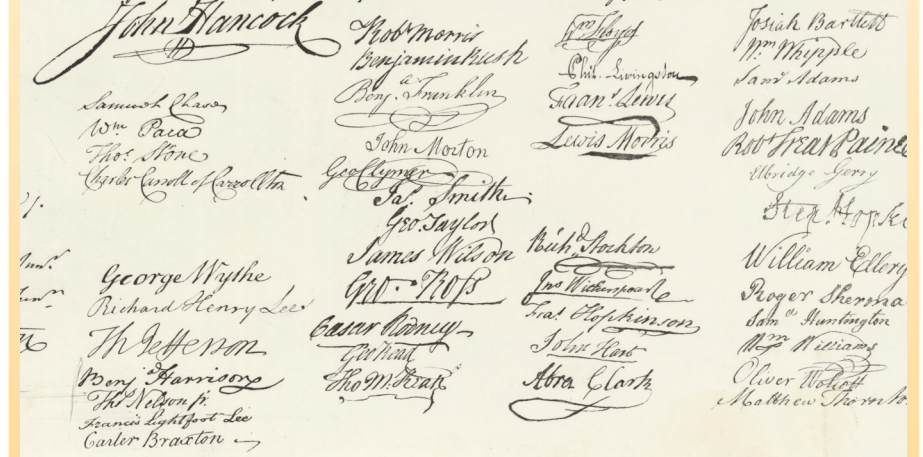 John Hancock
Samuel Chase
Wm Paca
Thos Stone
Charles Carroll of Carrollton
George Wythe
Richard Henry Lee
Th Jefferson
Benj Harrison
Thos Nelson jr.
Francis Lightfoot Lee
Carter Braxton
Robt Morris
Benjamin Rush
Benja. Franklin
John Morton
Geo Clymer
Jas. Smith
Geo. Taylor
James Wilson
Geo. Ross
Caesar Rodney
Geo Read
Tho M:Kean
Wm Floyd
Phil. Livingston
Frans. Lewis
Lewis Morris
Richd. Stockton
Jno Witherspoon
Fras. Hopkinson
John Hart
Abra Clark
Josiah Bartlett
Wm Whipple
Saml Adams
John Adams
Robt Treat Paine
Elbridge Gerry
Step. Hopk
William Ellery
Roger Sherma
Samel Huntington
Wm Williams
Oliver Wolcott
Matthew Thornto